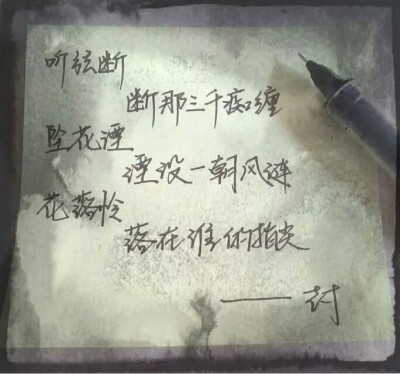 听弦断
断那三千痴缠
坠花湮
湮没一朝风涟
花落怜
落在谁的指尖
——封